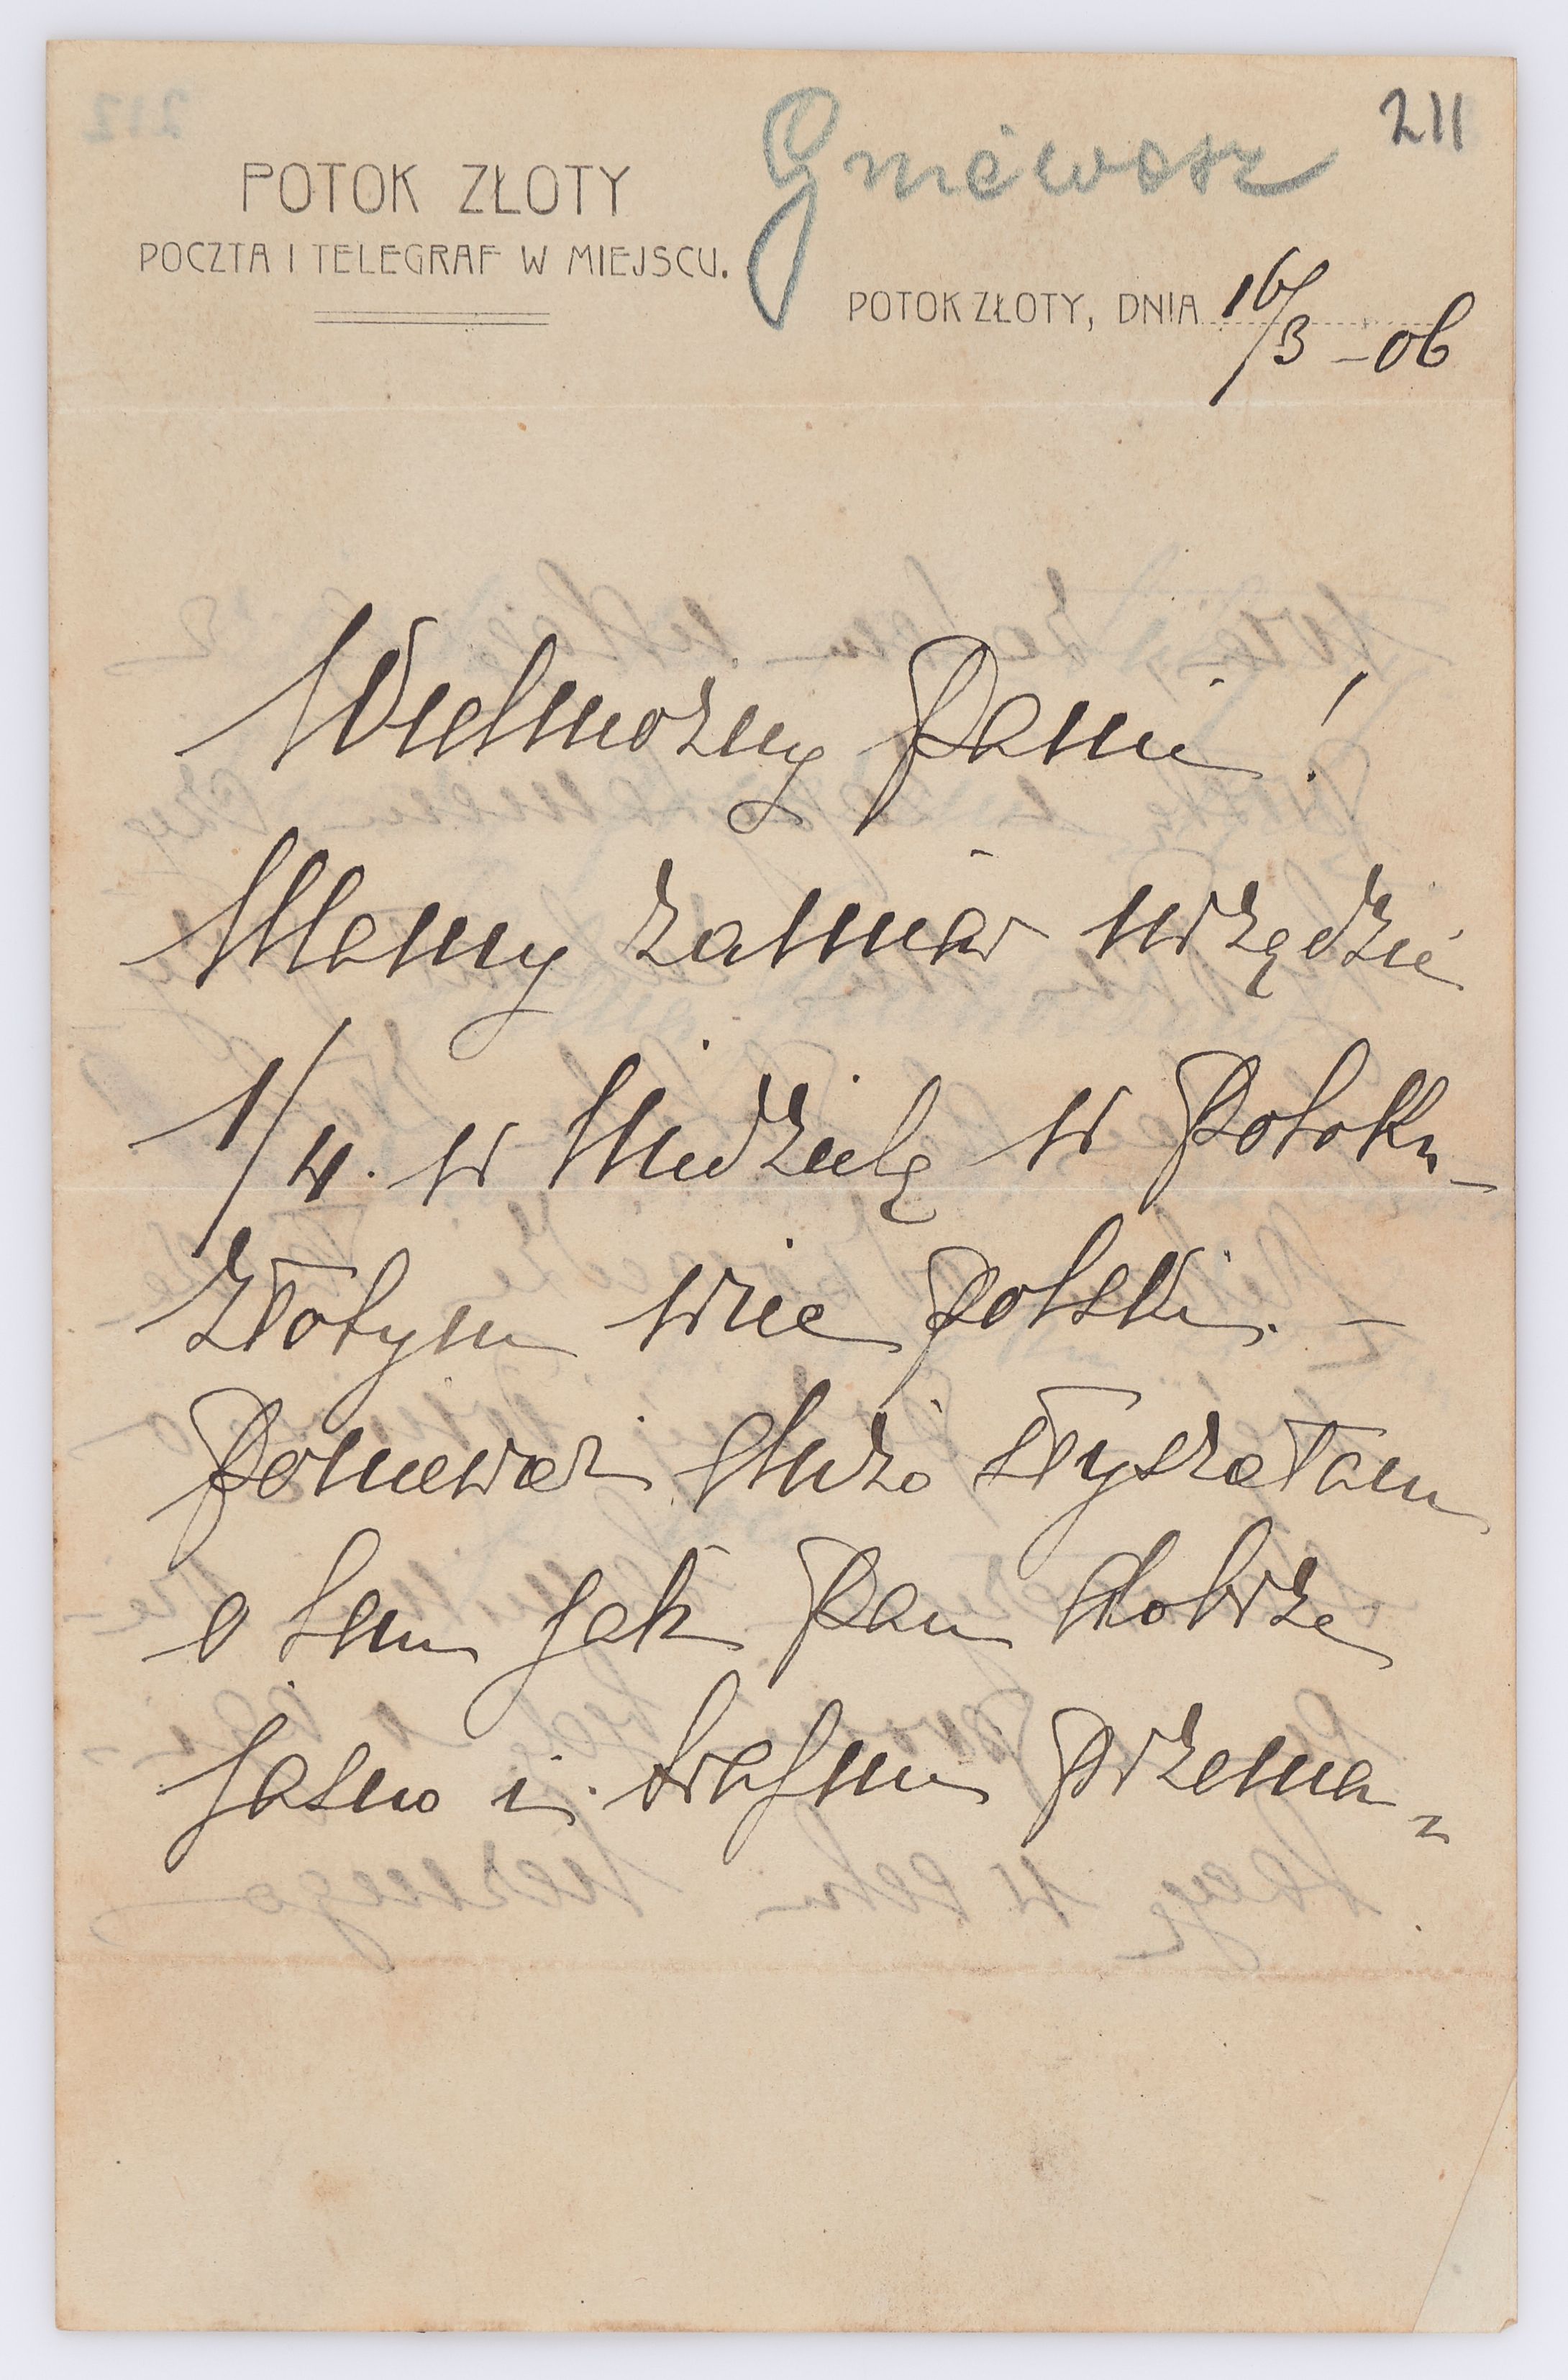 211
Gniewosz
POTOK ZŁOTY
POCZTA I TELEGRAF W MIEJSCU.
POTOK ZŁOTY, DNIA 16/3 – 06
Wielmożny Panie!
Mamy zamiar urządzić
1/4. w Niedzielę w Potoku
Złotym wiec polski. –
Ponieważ dużo słyszałam
o tem jak Pan dobrze
jasno i trafnie przema=